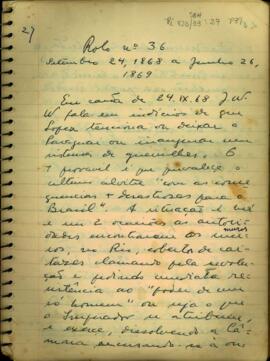 27
Rolo nº 36
Setembro 24, 1868 a Junho 26,
1869
Em carta de 24.IX.68 J. W.
W fala em indicios de que
Lopez tenciona ou deixar o
Paraguai ou inaugurar um
sistema de guerrilhas. É
provavel que prevaleça o
ultimo alvitre "com as conse
quencias + desastrosas para o
Brasil". A situação é tal
e as autori
dades encontraram os
muros
no Rio, cobertos de car
tazes clamando pela revolu
ção e pedindo imediata re
sistencia ao "poder de um
só homem" ou seja o que
o Imperador se atribuiu,
e exerce, dissolvendo a Câ
mara